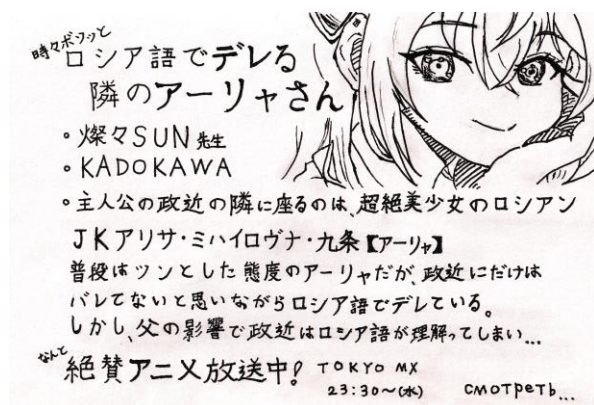 時々ボソッと
ロシア語でデレる
隣のアーリャさん
・燦々SUN先生
・KADOKAWA
・主人公の政近の隣に座るのは、超絶美少女のロシアン
JKアリサ・ミハイロヴナ・九条【アーリャ】
普段はツンとした態度のアーリャだが、政近にだけは
バレてないと思いながらロシア語でデレている。
しかし、父の影響で政近はロシア語が理解ってしまい…
なんと
絶賛アニメ放送中!
TOKYO MX
23:30〜(水)
смотреть...